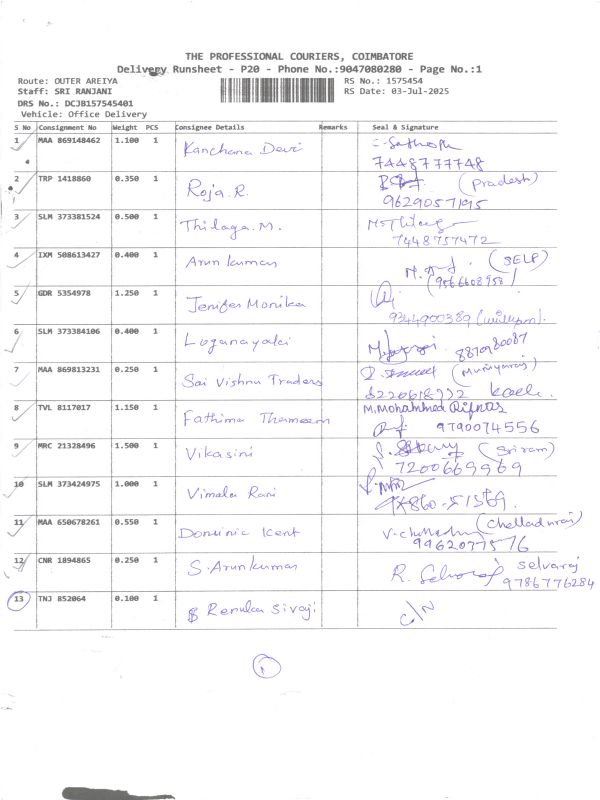 THE PROFESSIONAL COURIERS, COIMBATORE
Delivery Runsheet - P20 - Phone No.:9047080280 - Page No.:1
Route: OUTER AREIYA RS No.: 1575454
Staff: SRI RANJANI RS Date: 03-Jul-2025
DRS No.: DCJB157545401
Vehicle: Office Delivery
S No Consignment No Weight PCS Consignee Details Remarks Seal & Signature
1 MAA 869148462 1.100 1 Kanchana Devi
7448777748
2 TRP 1418860 0.350 1 Roja.R. (Pradesh)
9629057195
3 SLM 373381524 0.500 1 Thilaga.M.
7448757472
4 IXM 508613427 0.400 1 Arun kumar (SELF)
5 GDR 5354978 1.250 1 Jenifer Monika
9344900389
6 SLM 373384106 0.400 1 Loganayaki 8870980087
7 MAA 869813231 0.250 1 Sai Vishnu Traders
8 TVL 8117017 1.150 1 Fathima M.Mohammed Rifnas
9790074556
9 MRC 21328496 1.500 1 Vikasini (Sriram)
7200669969
10 SLM 373424975 1.000 1 Vimala Rani
11 MAA 650678261 0.550 1 Dominic Kent (Chelladurai)
9962077576
12 CNR 1894865 0.250 1 S.Arunkumar R. Selvaraj Selvaraj
9786776284
13 TNJ 852064 0.100 1 Renuka Sivaji C/N
1